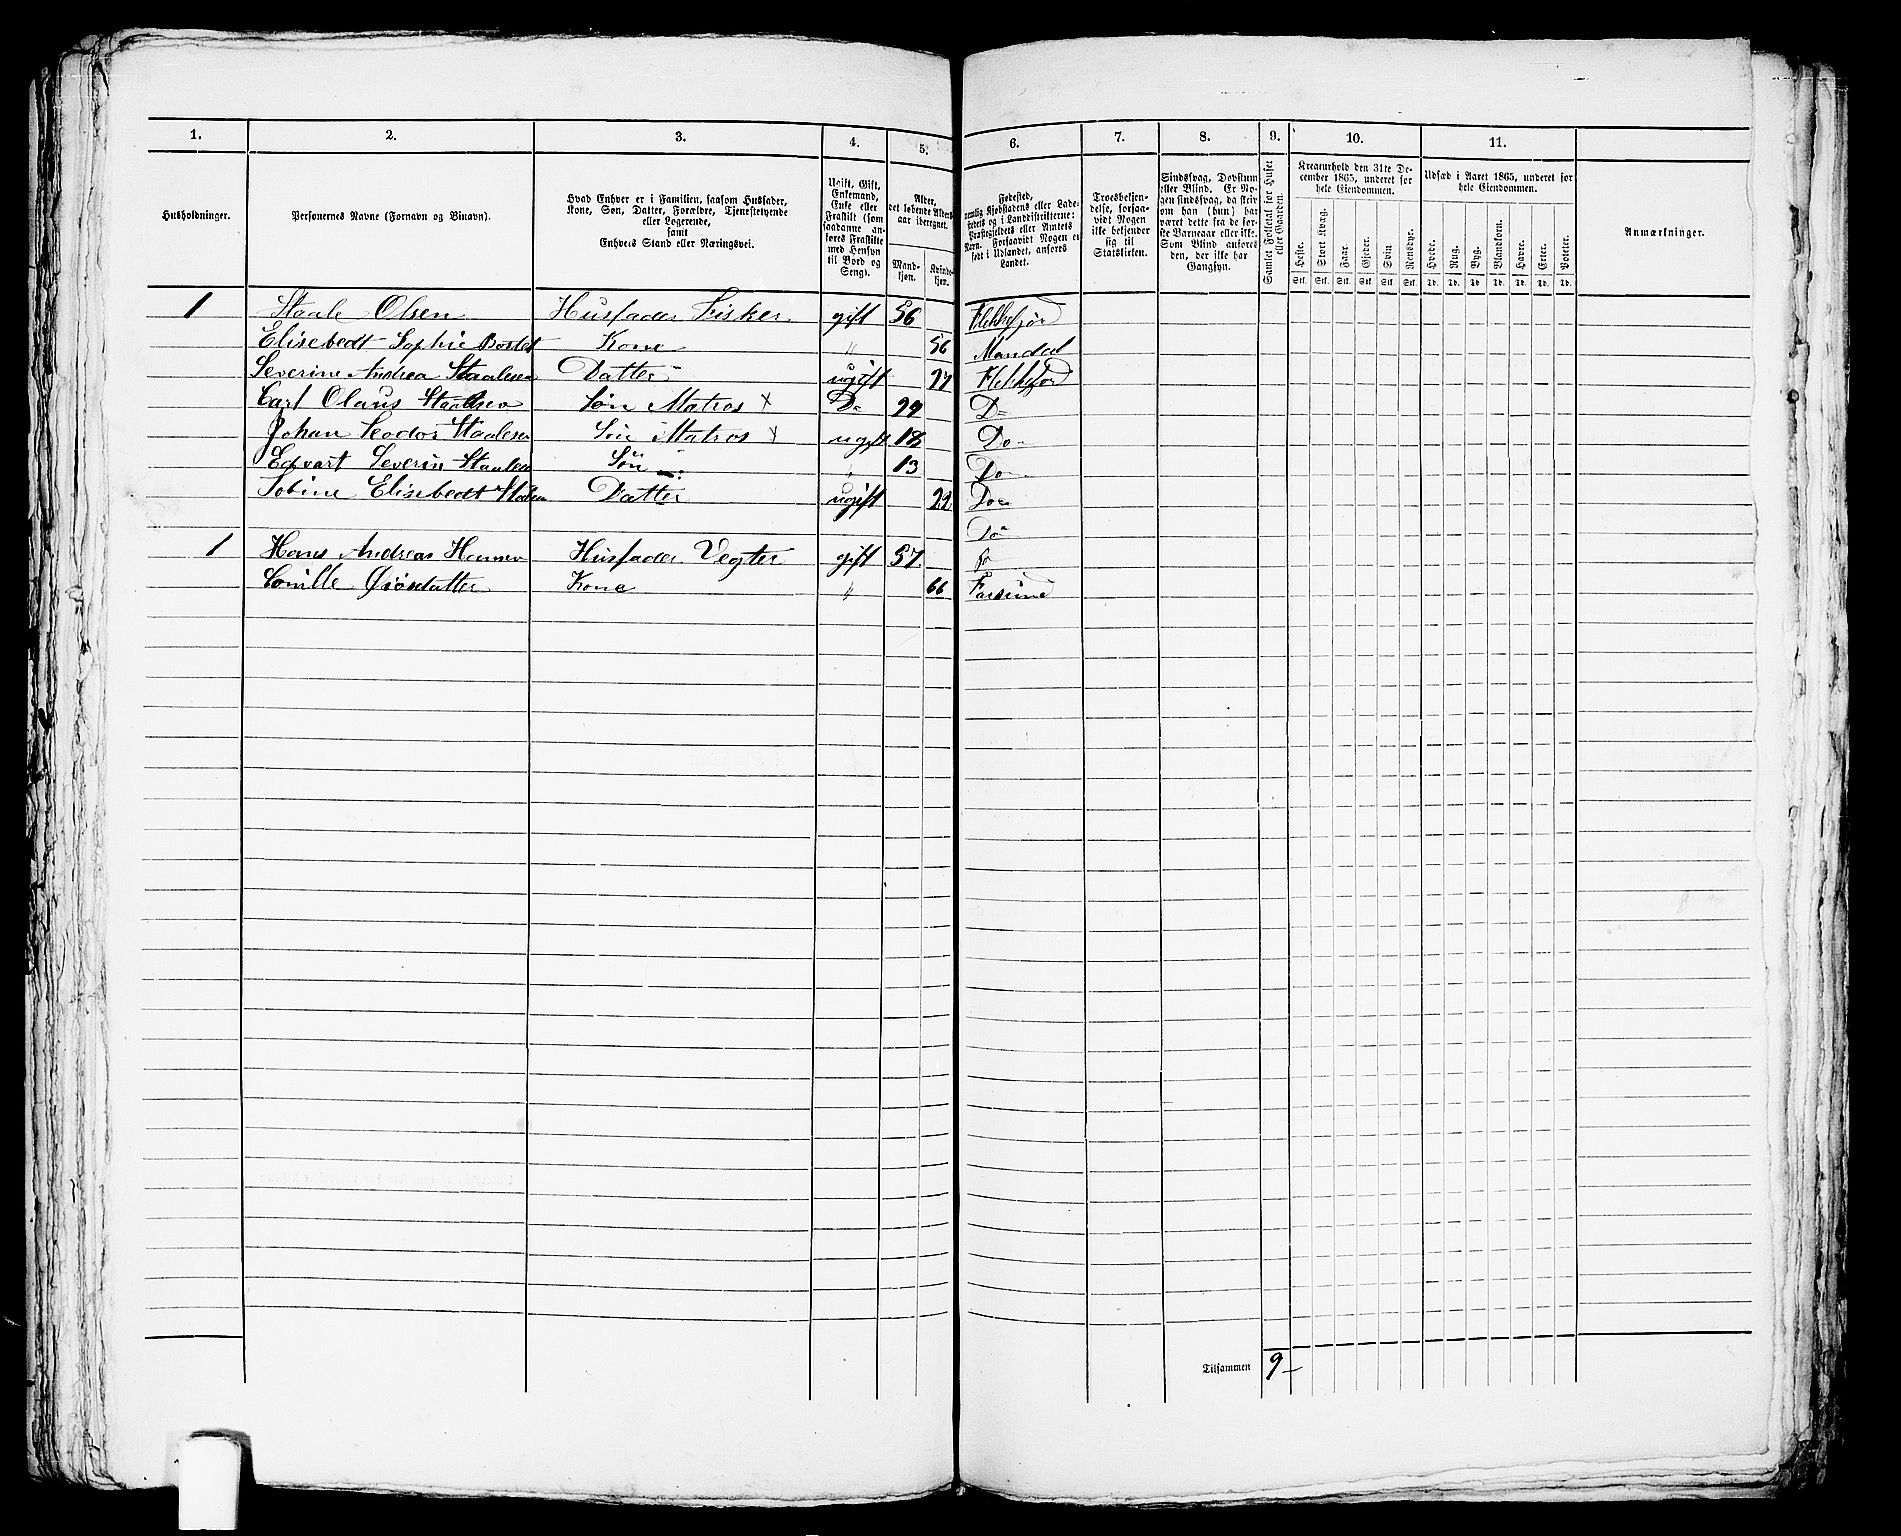 1. 2. 3. 4. 5. 6. 7. 8. 9. 10. 11.
Husholdninger.
Personernes Navne (Fornavn og Binavn).
Hvad Enhver er i Familien, saasom Husfader,
Kone, Søn, Datter, Forældre, Tjenestetyende
eller Logerende,
samt
Enhvers Stand eller Næringsvei.
Ugift, Gift,
Enkemand,
Enke eller
Fraskilt (som
saadanne an-
føres Fraskilte
med Hensyn
til Bord og
Seng).
Alder,
det løbende Alders-
aar iberegnet.
Mand-
kjøn.
Kvinde-
kjøn.
Fødested,
nemlig Kjøbstadens eller Lade-
stedets og i Landdistrikterne:
Præstegjeldets eller Amtets
Navn. Forsaavidt Nogen er
født i Udlandet, anføres
Landet.
Troesbekjen-
delse, forsaa-
vidt Nogen
ikke bekjender
sig til
Statskirken.
Sindssvag, Døvstum
eller Blind. Er No-
gen sindssvag, da skriv
om han (hun) har
været dette fra de før-
ste Barneaar eller ikke.
Som Blind anføres
den, der ikke har
Gangsyn.
Samlet Folketal for Huset
eller Gaarden.
Kreaturhold den 31te De-
cember 1865, underet for
hele Eiendommen.
Heste. Stort Kvæg. Faar. Gjeder. Svin. Rensdyr.
Stk. Stk. Stk. Stk. Stk. Stk.
Udsæd i Aaret 1865, underet for
hele Eiendommen.
Hvede. Rug. Byg. Blandkorn. Havre. Erter. Poteter.
Td. Td. Td. Td. Td. Td. Td.
Anmærkninger.
1 Staale Olsen Husfader Fisker gift 56 Flekkefjord
Elisebedt Sophie Kone " 56 Mandal
Severine Andrea Staalesen Datter ugift 27 Flekkefjord
Carl Olaus Staalsen Søn Matros × Do
Johan Teodor Staalesen Søn Matros × ugift 18 Do
Edvart Severin Staalsen Søn " 13 Do
Tobine Elisebedt Datter ugift 22 Do
Do
1 Hans Andreas Husfader Vegter gift 57
Kone " 66 Farsund
Tilsammen 9